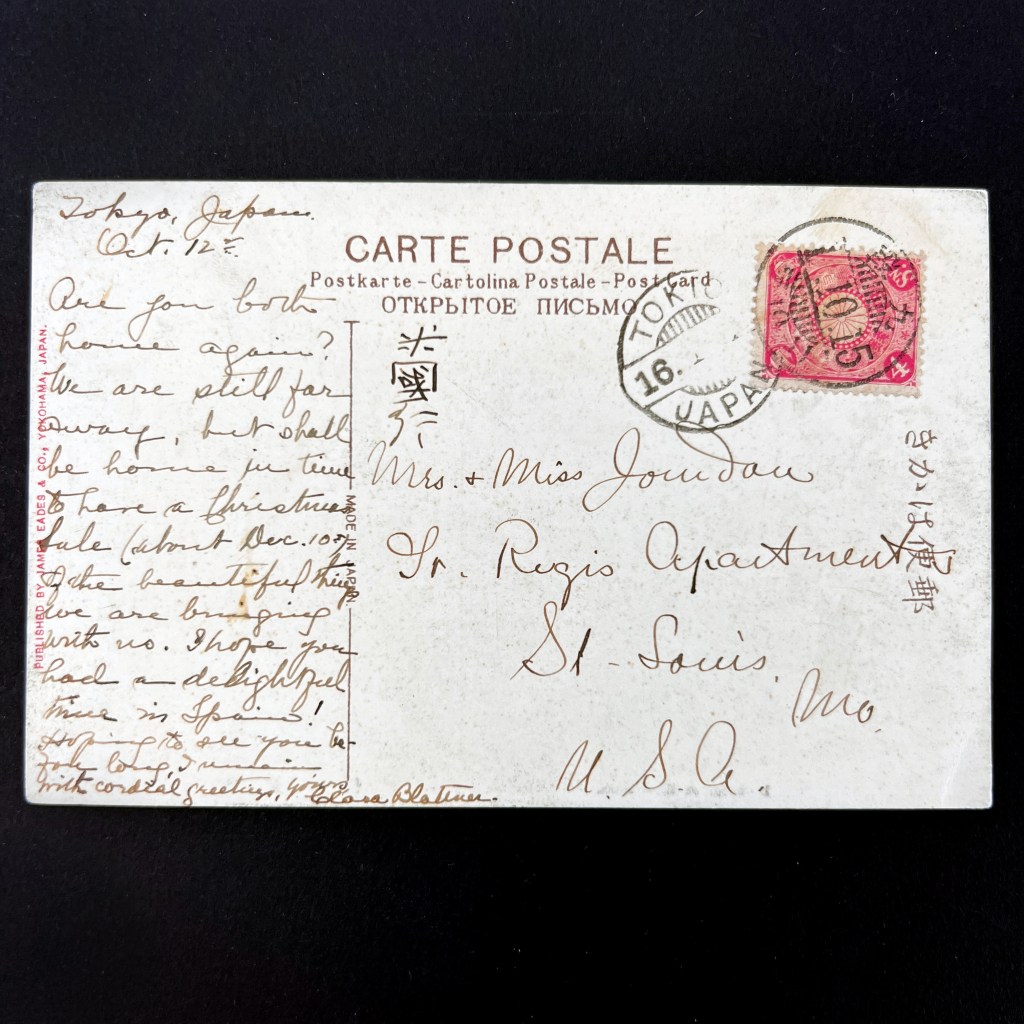 Tokyo, Japan.
Oct. 12
Are you both
home again?
We are still far
away, but shall
be home in time
to have a Christmas
Sale (about Dec. 10
of the beautiful things
we are bringing
with us. I hope you
had a delightful
time in Spain!
Hoping to see you be-
fore long, I remain
with cordial greetings, yours
Clara Blattner.
PUBLISHED BY JAMES EADES & CO., YOKOHAMA, JAPAN.
CARTE POSTALE
Postkarte - Cartolina Postale - Post Card
ОТКРЫТОЕ ПИСЬМО
MADE IN JAPAN
米國
TOKIO
16.
JAPAN
10.15
4
Mrs. & Miss Jourdan
St. Regis Apartments
St. Louis,
Mo.
U. S. A.
きかは便郵